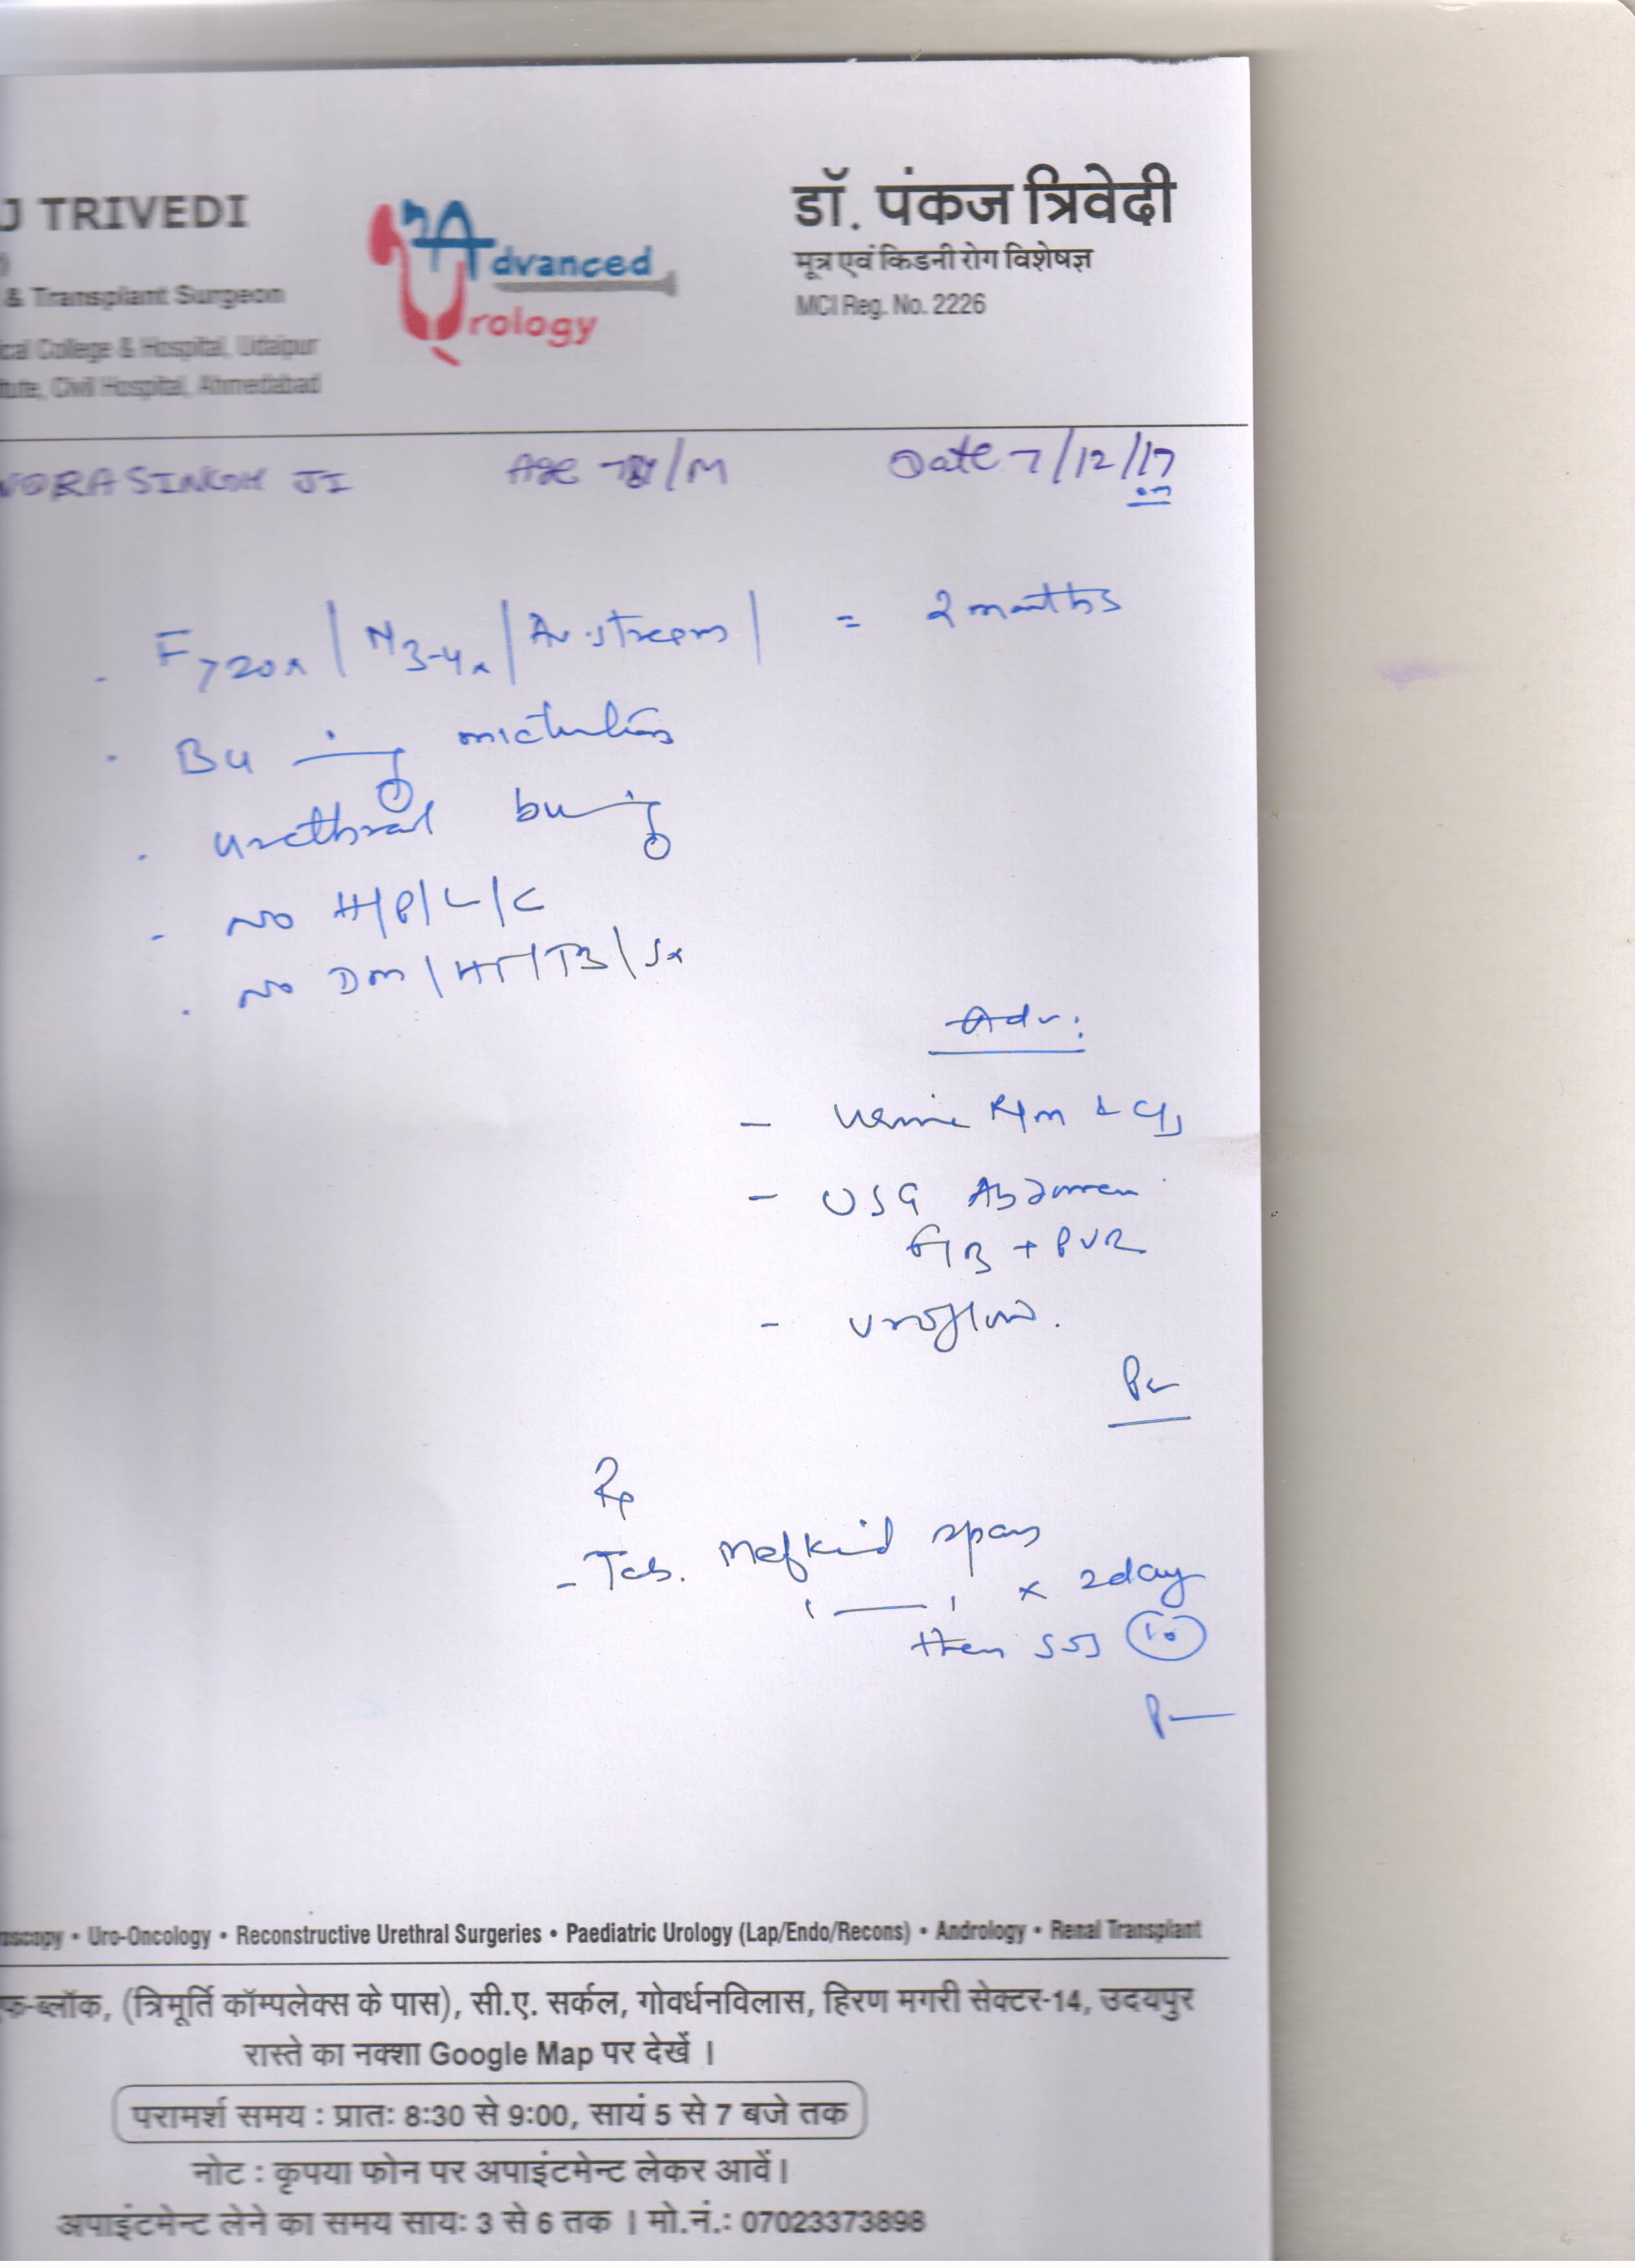 J TRIVEDI
& Transplant Surgeon
ical College & Hospital, Udaipur
tute, Civil Hospital, Ahmedabad
Advanced
Urology
डॉ. पंकज त्रिवेदी
मूत्र एवं किडनी रोग विशेषज्ञ
MCI Reg. No. 2226
NDRASINGH JI Age /M Date 7/12/17
F >20x | N 3-4x | Av. stream | = 2 months
Bu ing micturition
urethral buing
No H/P/L/C
No Dm/HT/TB/Sx
Adv:
- Urine R/m & C/S
- USG Abdomen
+ PVR
- Uroflow.
Rx
- Tab. Mefkind spas
1 — 1 x 2day
then SOS 10
oscopy • Uro-Oncology • Reconstructive Urethral Surgeries • Paediatric Urology (Lap/Endo/Recons) • Andrology • Renal Transplant
फ-ब्लॉक, (त्रिमूर्ति कॉम्पलेक्स के पास), सी.ए. सर्कल, गोवर्धनविलास, हिरण मगरी सेक्टर-14, उदयपुर
रास्ते का नक्शा Google Map पर देखें ।
परामर्श समय : प्रातः 8:30 से 9:00, सायं 5 से 7 बजे तक
नोट : कृपया फोन पर अपाइंटमेन्ट लेकर आवें।
अपाइंटमेन्ट लेने का समय सायः 3 से 6 तक । मो.नं.: 07023373898